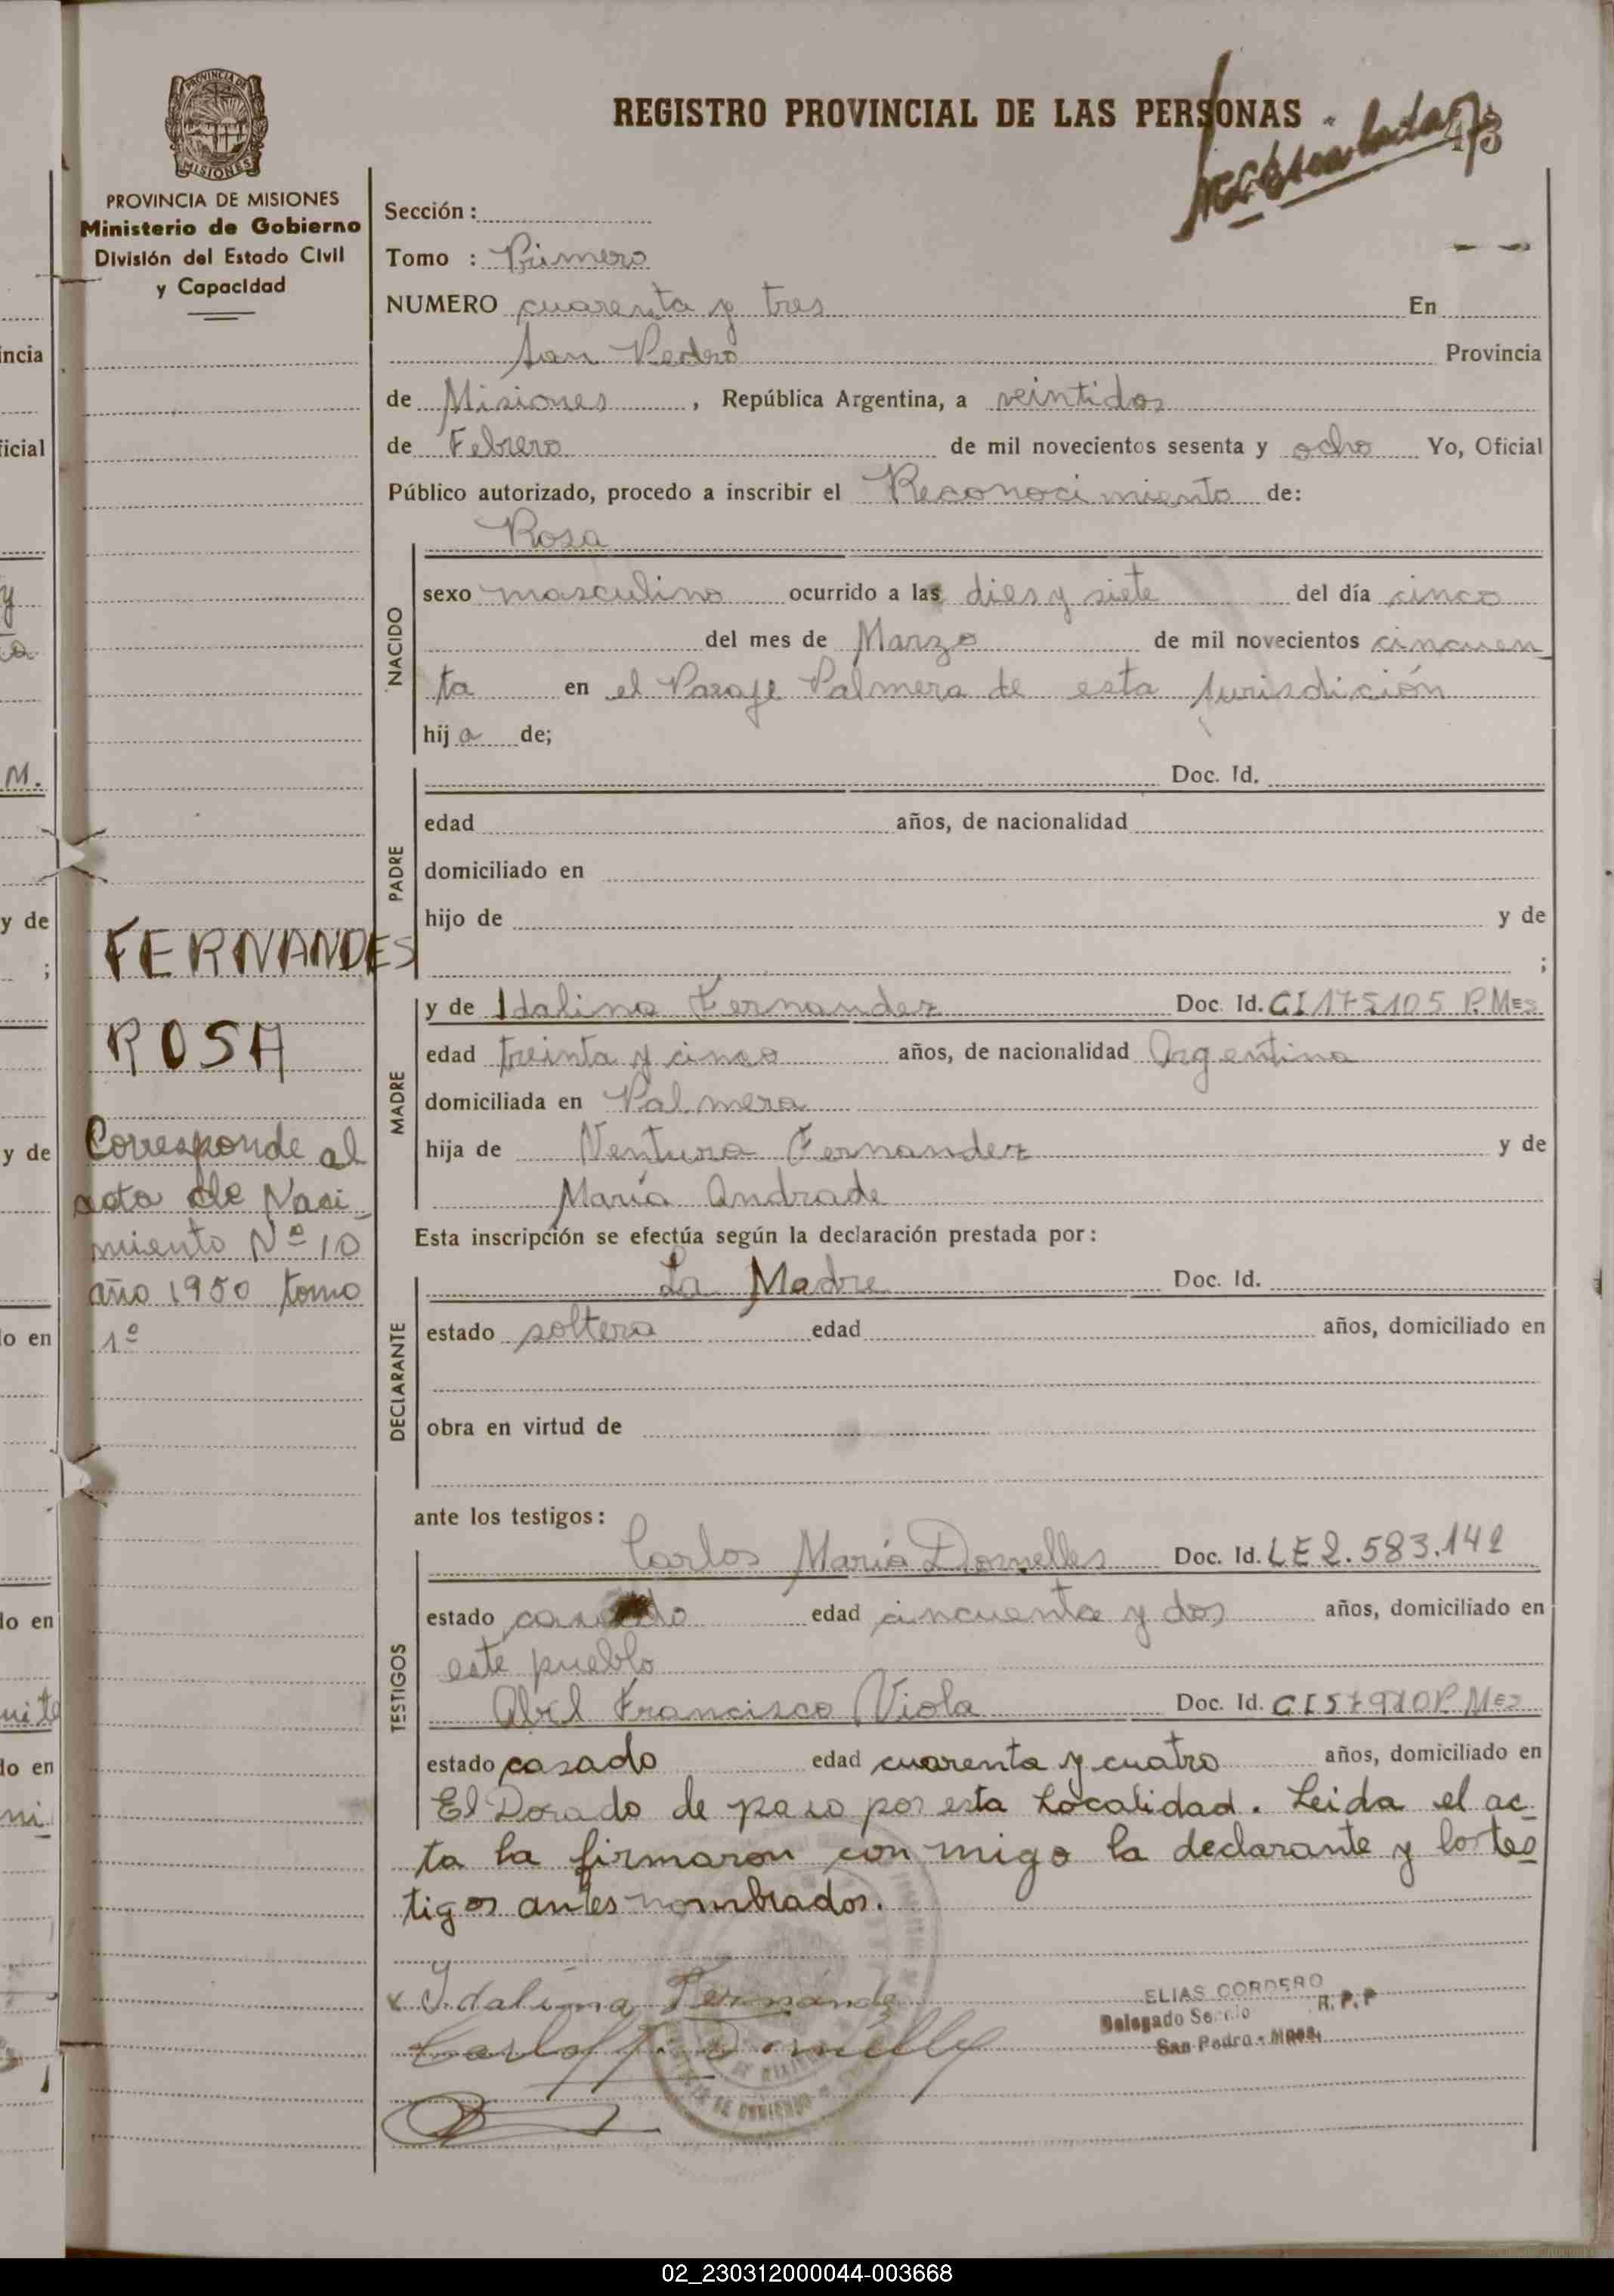 REGISTRO PROVINCIAL DE LAS PERSONAS
43
PROVINCIA DE
MISIONES
PROVINCIA DE MISIONES
Ministerio de Gobierno
División del Estado Civil
y Capacidad
Sección :
Tomo : Primero
NUMERO cuarenta y tres En
San Pedro Provincia
de Misiones , República Argentina, a veintidos
de Febrero de mil novecientos sesenta y ocho Yo, Oficial
Público autorizado, procedo a inscribir el Reconocimiento de:
Rosa
NACIDO
sexo masculino ocurrido a las dies y siete del día cinco
del mes de Marzo de mil novecientos cincuen
ta en el Paraje Palmera de esta Jurisdición
hij a de;
PADRE
Doc. Id.
edad años, de nacionalidad
domiciliado en
hijo de y de
;
FERNANDES
ROSA
Corresponde al
acta de Naci_
miento Nº 10
año 1950 tomo
1º
MADRE
y de Idalina Fernandez Doc. Id. CI 175105 P. Mes
edad treinta y cinco años, de nacionalidad Argentina
domiciliada en Palmera
hija de Ventura Fernandez y de
María Andrade
Esta inscripción se efectúa según la declaración prestada por :
DECLARANTE
La Madre Doc. Id.
estado soltera edad años, domiciliado en
obra en virtud de
ante los testigos :
TESTIGOS
Carlos María Dornelles Doc. Id. LE 2.583.142
estado casado edad cincuenta y dos años, domiciliado en
este pueblo
Abel Francisco Viola Doc. Id. CI 57980 P. Mes
estado casado edad cuarenta y cuatro años, domiciliado en
El Dorado de paso por esta Localidad. Leida el ac_
ta la firmaron con migo la declarante y los tes
tigos antes nombrados.
Idalina Fernande
ELIAS CORDERO
Delegado R. P. P
San Pedro - Mnes.
02_230312000044-003668